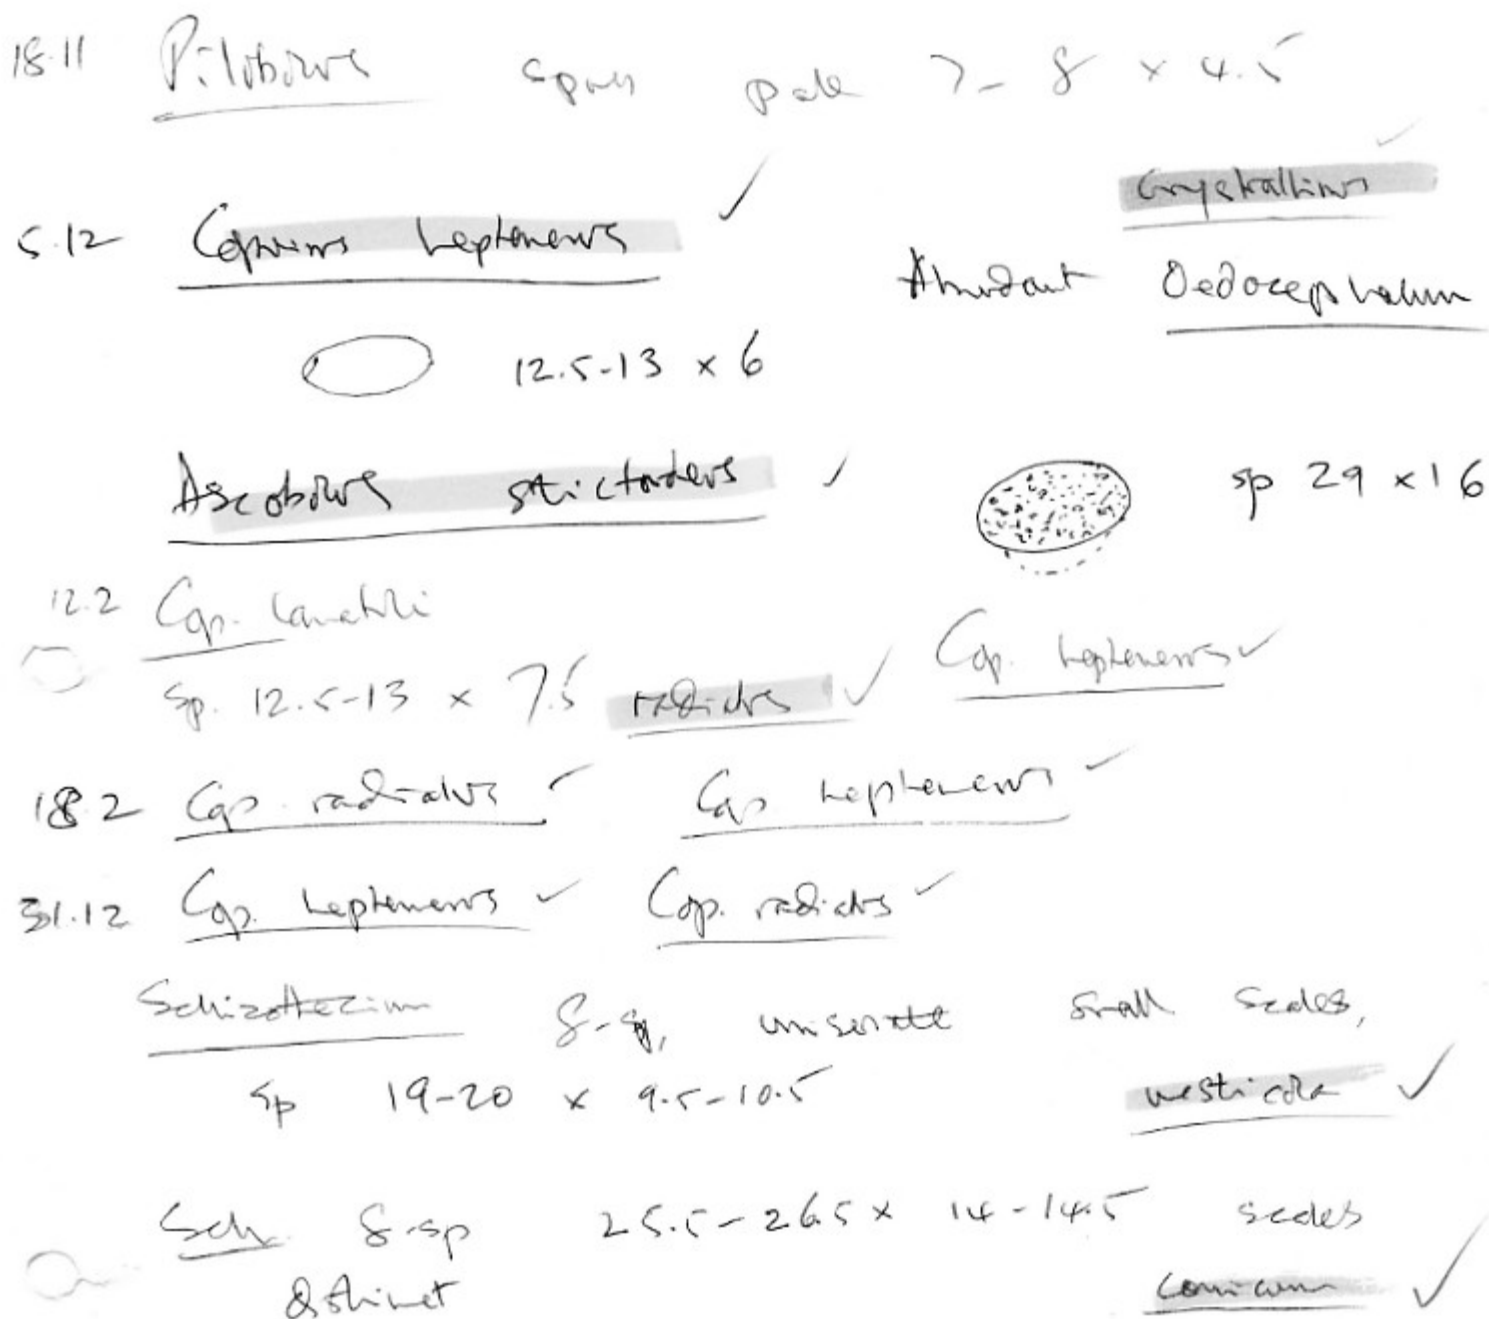 18.11 Pilobolus spores pale 7-8 × 4.5
crystallinus ✓
5.12 Coprinus heptemerus ✓
Abundant Oedocephalum
12.5-13 × 6
Ascobolus stictoideus ✓ sp 29 × 16
12.2 Cop. lanatuli
Sp. 12.5-13 × 7.5 radiatus ✓ Cop. heptemerus ✓
18.2 Cop. radiatus ✓ Cop. heptemerus ✓
31.12 Cop. heptemerus ✓ Cop. radiatus ✓
Schizothecium 8-sp, uniseriate small scales,
sp 19-20 × 9.5-10.5 vesticola ✓
Sch 8-sp 25.5-26.5 × 14-14.5 scales
distinct conicum ✓